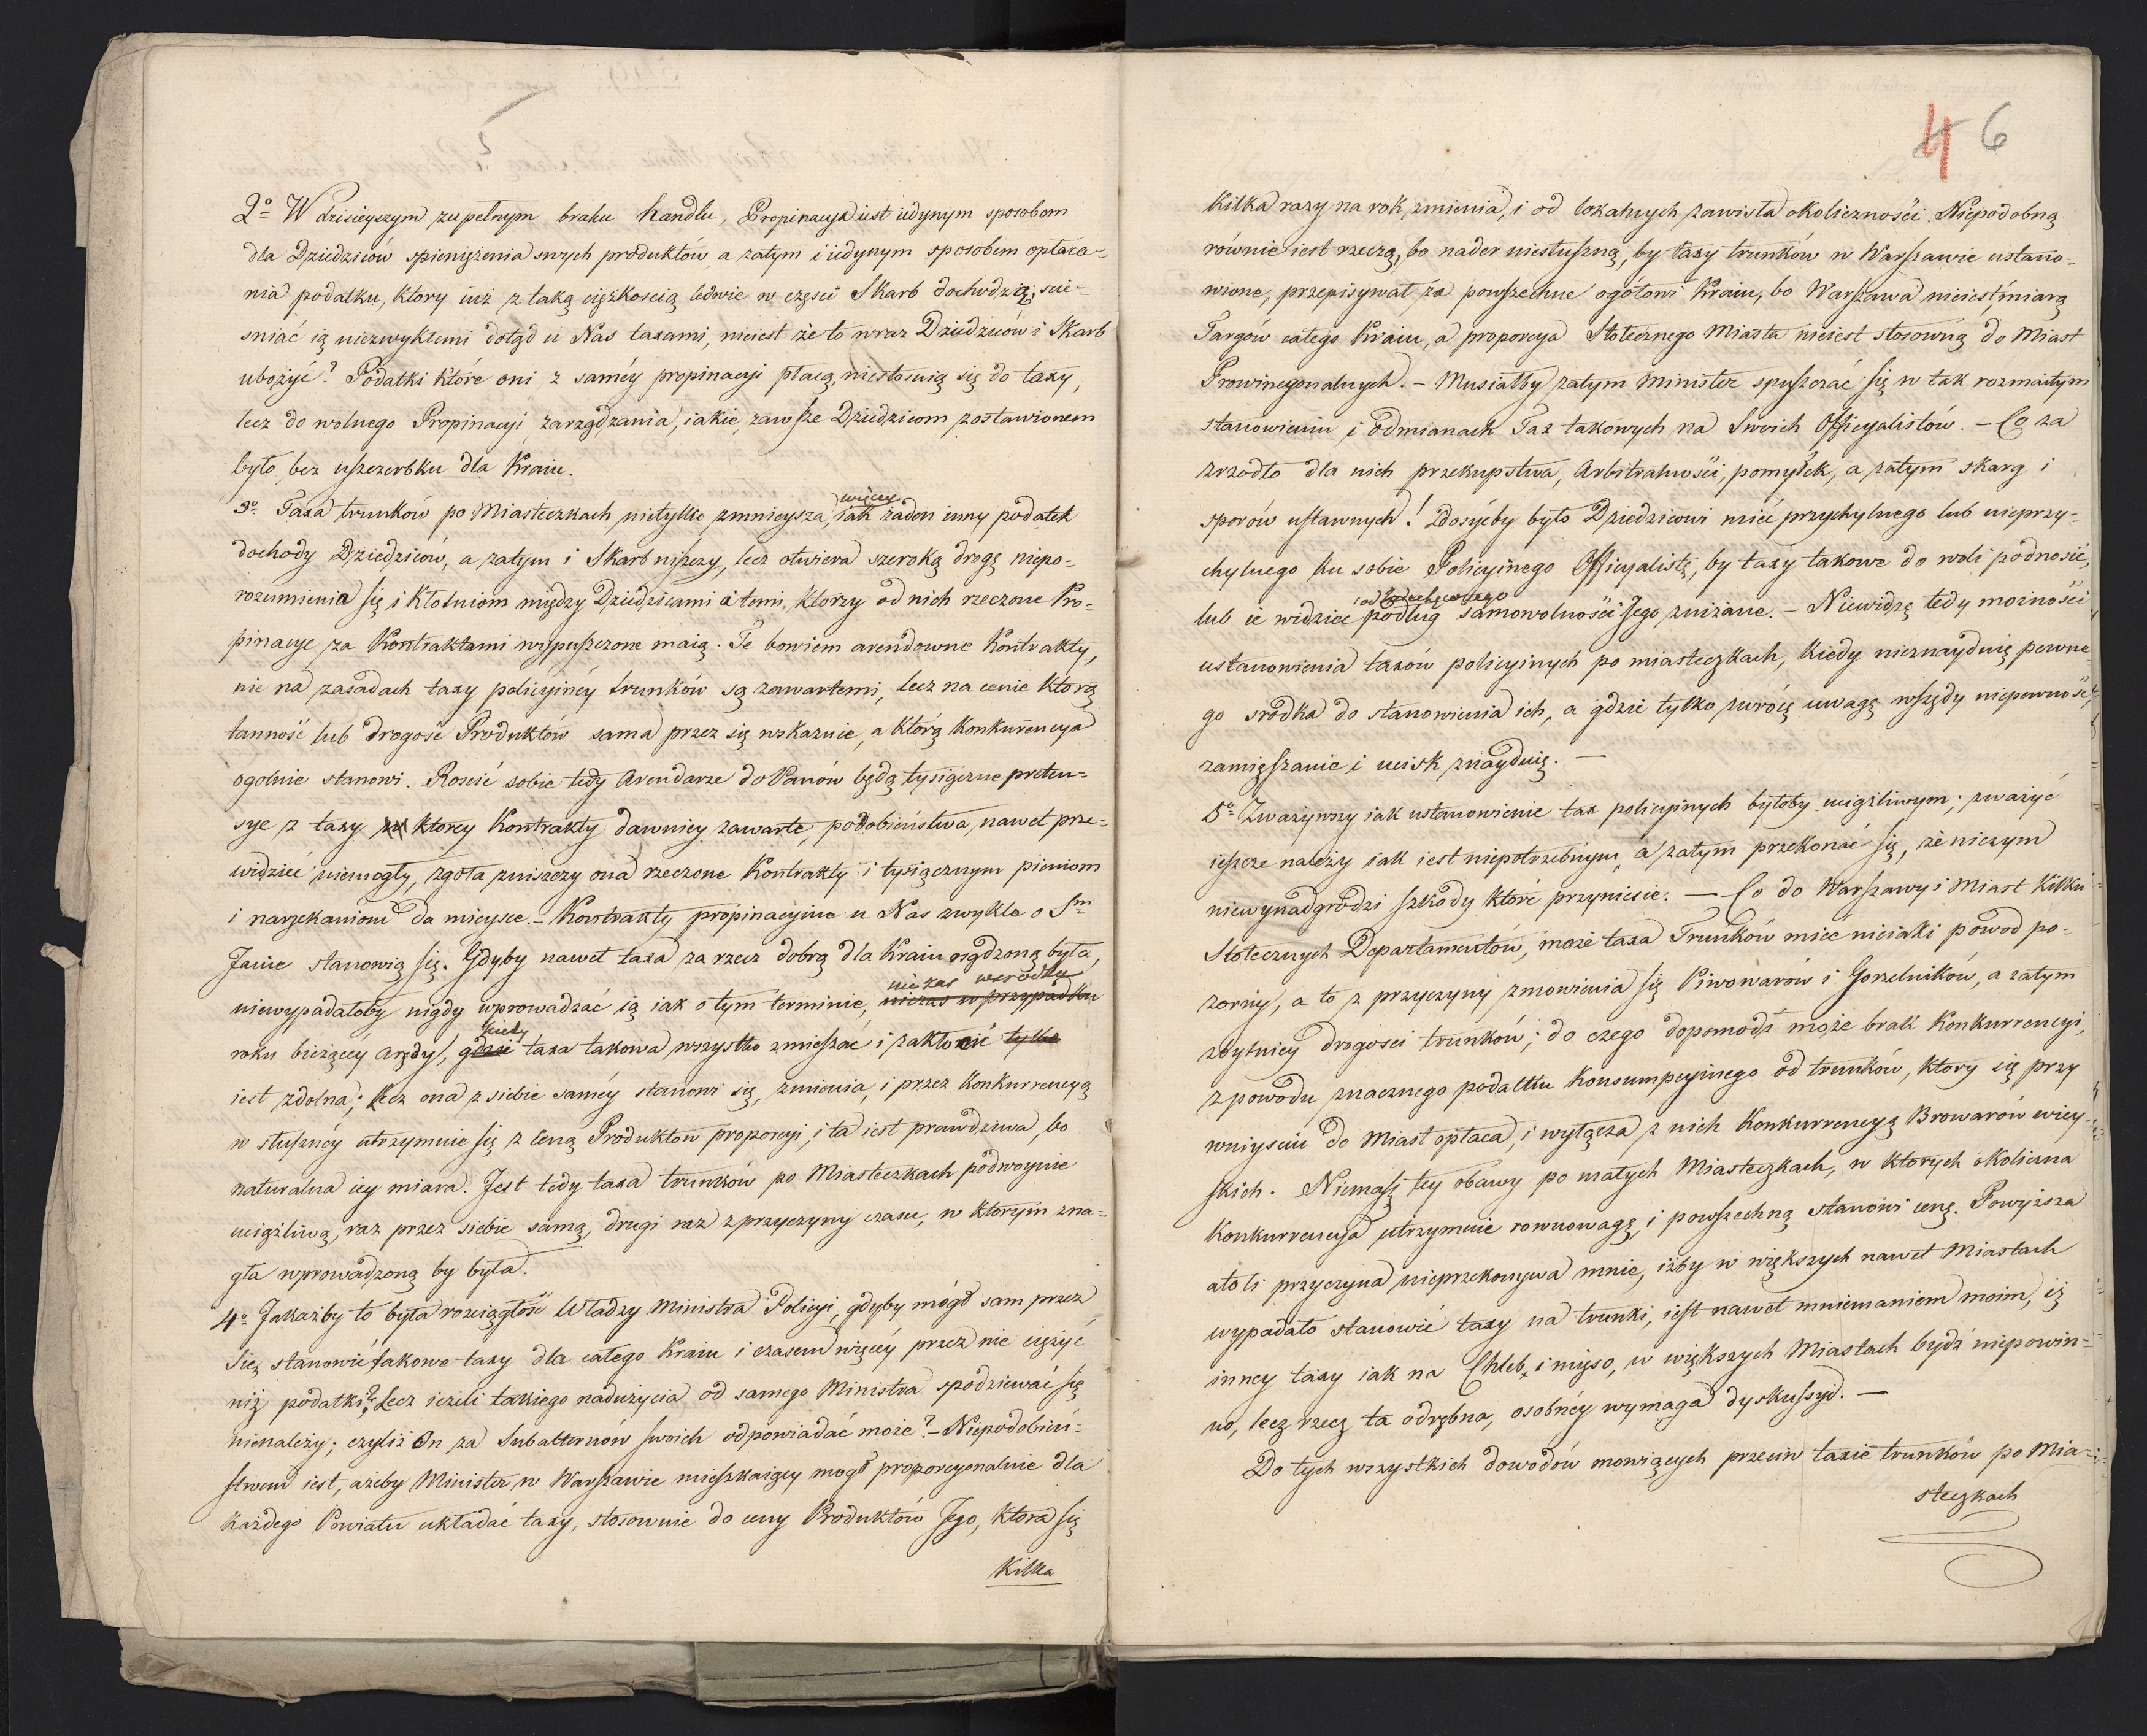 2o W dzisieyszym zupełnym braku handlu, Propinacyja iest iedynym sposobem
dla Dziedziców spieniężenia swych produktów, a zatym i iedynym sposobem opłaca-
nia podatku, ktory iuż z taką ciężkoscią ledwie w częsci Skarb dochodzi; scie-
sniać ią niezwykłemi dotąd u Nas taxami, nieiest że to wraz Dziedziców i Skarb
ubożyć? Podatki które oni z saméy propinacyi płacą, niestosuią się do taxy,
lecz do wolnego Propinacyi zarządzania, iakie zawsze Dziedzicom zostawionem
było, bez uszczerbku dla Kraiu.
3o Taxa trunków po Miasteczkach nietylko zmnieysza, więcey iak żaden inny podatek
dochody Dziedziców, a zatym i Skarb niszczy, lecz otwiera szeroką drogę niepo-
rozumienia się i kłotniom między Dziedzicami a temi, ktorzy od nich rzeczone Pro-
pinacye za Kontraktami wypuszczone maią. Te bowiem arendowne Kontrakty,
nie na zasadach taxy policyinéy trunków są zawartemi, lecz na cenie ktorą
tanność lub drogość Produktów sama przez się wskazuie, a którą Konkurencya
ogolnie stanowi. Rościć sobie tedy Arendarze do Panów będą tysiączne preten-
sye z taxy ktorey Kontrakty dawniey zawarte, podobieństwa nawet prze-
widzieć niemogły, zgoła zniszczy ona rzeczone Kontrakty i tysiącznym pieniom
i narzekaniom da mieysce. – Kontrakty propinacyine u Nas zwykle o Sm
Janie stanowią się. Gdyby nawet taxa za rzecz dobrą dla Kraiu osądzoną była,
niewypadałoby nigdy wprowadzać ią iak o tym terminie, niezas wśrodku niezas w przypadku
roku bieżącey Arędy, kiedy gdzie taxa takowa wszystko zmieszać i zakłocić tylko
iest zdolna; lecz ona z siebie saméy stanowi się, zmienia, i przez Konkurrencyą
w słusznéy utrzymuie się z ceną Produktow proporcyi, i ta iest prawdziwa, bo
naturalna iey miara. Jest tedy taxa trunków po Miasteczkach podwoynie
uciążliwą, raz przez siebie samą, drugi raz z przyczyny czasu, w ktorym zna-
gła wprowadzoną by była.
4o Jakażby to była rozciągłość Władzy Ministra Policyi, gdyby mógł sam przez
się stanowić takowe taxy dla całego Kraiu i czasem więcéy przez nie ciężyć
niż podatki? Lecz ieżeli takiego nadużycia od samego Ministra spodziewać się
nienależy; czyliż On za Subalternów swoich odpowiadać może? – Niepodobień-
stwem iest, ażeby Minister w Warszawie mieszkaiący mogł proporcyonalnie dla
każdego Powiatu układać taxy, stosownie do ceny Produktów Jego, ktora się
Kilka
4 6
kilka razy na rok zmienia, i od lokalnych zawisła okoliczności. Niepodobną
równie iest rzeczą, bo nader niesłuszną, by taxy trunków w Warszawie ustano-
wione, przepisywał za powszechne ogołowi Kraiu, bo Warszawa nieiest miarą
Targów całego Kraiu, a proporcya Stołecznego Miasta nieiest stosowną do Miast
Prowincyonalnych. – Musiałby zatym Minister spuszczać się w tak rozmaitym
stanowieniu i odmianach Tax takowych na Swoich Officyalistów. – Co za
zrzodło dla nich przekupstwa, Arbitralności, pomyłek, a zatym skarg i
sporów ustawnych! Dosyćby było Dziedzicowi mieć przychylnego lub nieprzy-
chylnego ku sobie Policyinego Officyalistę, by taxy takowe do woli podnosić,
lub ie widzieć podług samowolności Jego zniżane. – Niewidzę tedy możności
ustanowienia taxów policyinych po miasteczkach, kiedy nieznayduię pewne-
go srodka do stanowienia ich, a gdzie tylko zwrócę uwagę wszędy niepewność,
zamięszanie i ucisk znayduię. –
5o Zważywszy iak ustanowienie tax policyinych byłoby uciążliwym; zważyć
ieszcze należy iak iest niepotrzebnym, a zatym przekonać się, że niczym
niewynadgrodzi szkody które przyniesie. – Co do Warszawy i Miast kilku
Stołecznych Departamentów, może taxa Trunków mieć nieiaki powod po-
zorny, a to z przyczyny zmowienia się Piwowarów i Gorzelników, a zatym
zbytniey drogosci trunków; do czego dopomodz może brak Konkurrencyi,
z powodu znacznego podatku Konsumpcyinego od trunków, ktory się przy
wniyściu do Miast opłaca, i wyłącza z nich Konkurrencyą Browarów wiey-
skich. Niemasz tey obawy po małych Miasteczkach, w ktorych okoliczna
Konkurrencya utrzymuie rownowagę, i powszechną stanowi cenę. Powyższa
atoli przyczyna nieprzekonywa mnie, iżby w większych nawet Miastach
wypadało stanowić taxy na trunki, iest nawet mniemaniem moim, iż
inney taxy iak na Chleb i mięso, w większych Miastach bydź niepowin-
no, lecz rzecz ta odrębna, osobnéy wymaga dyskussyi. –
Do tych wszystkich dowodów mowiących przeciw taxie trunków po Mia-
steczkach